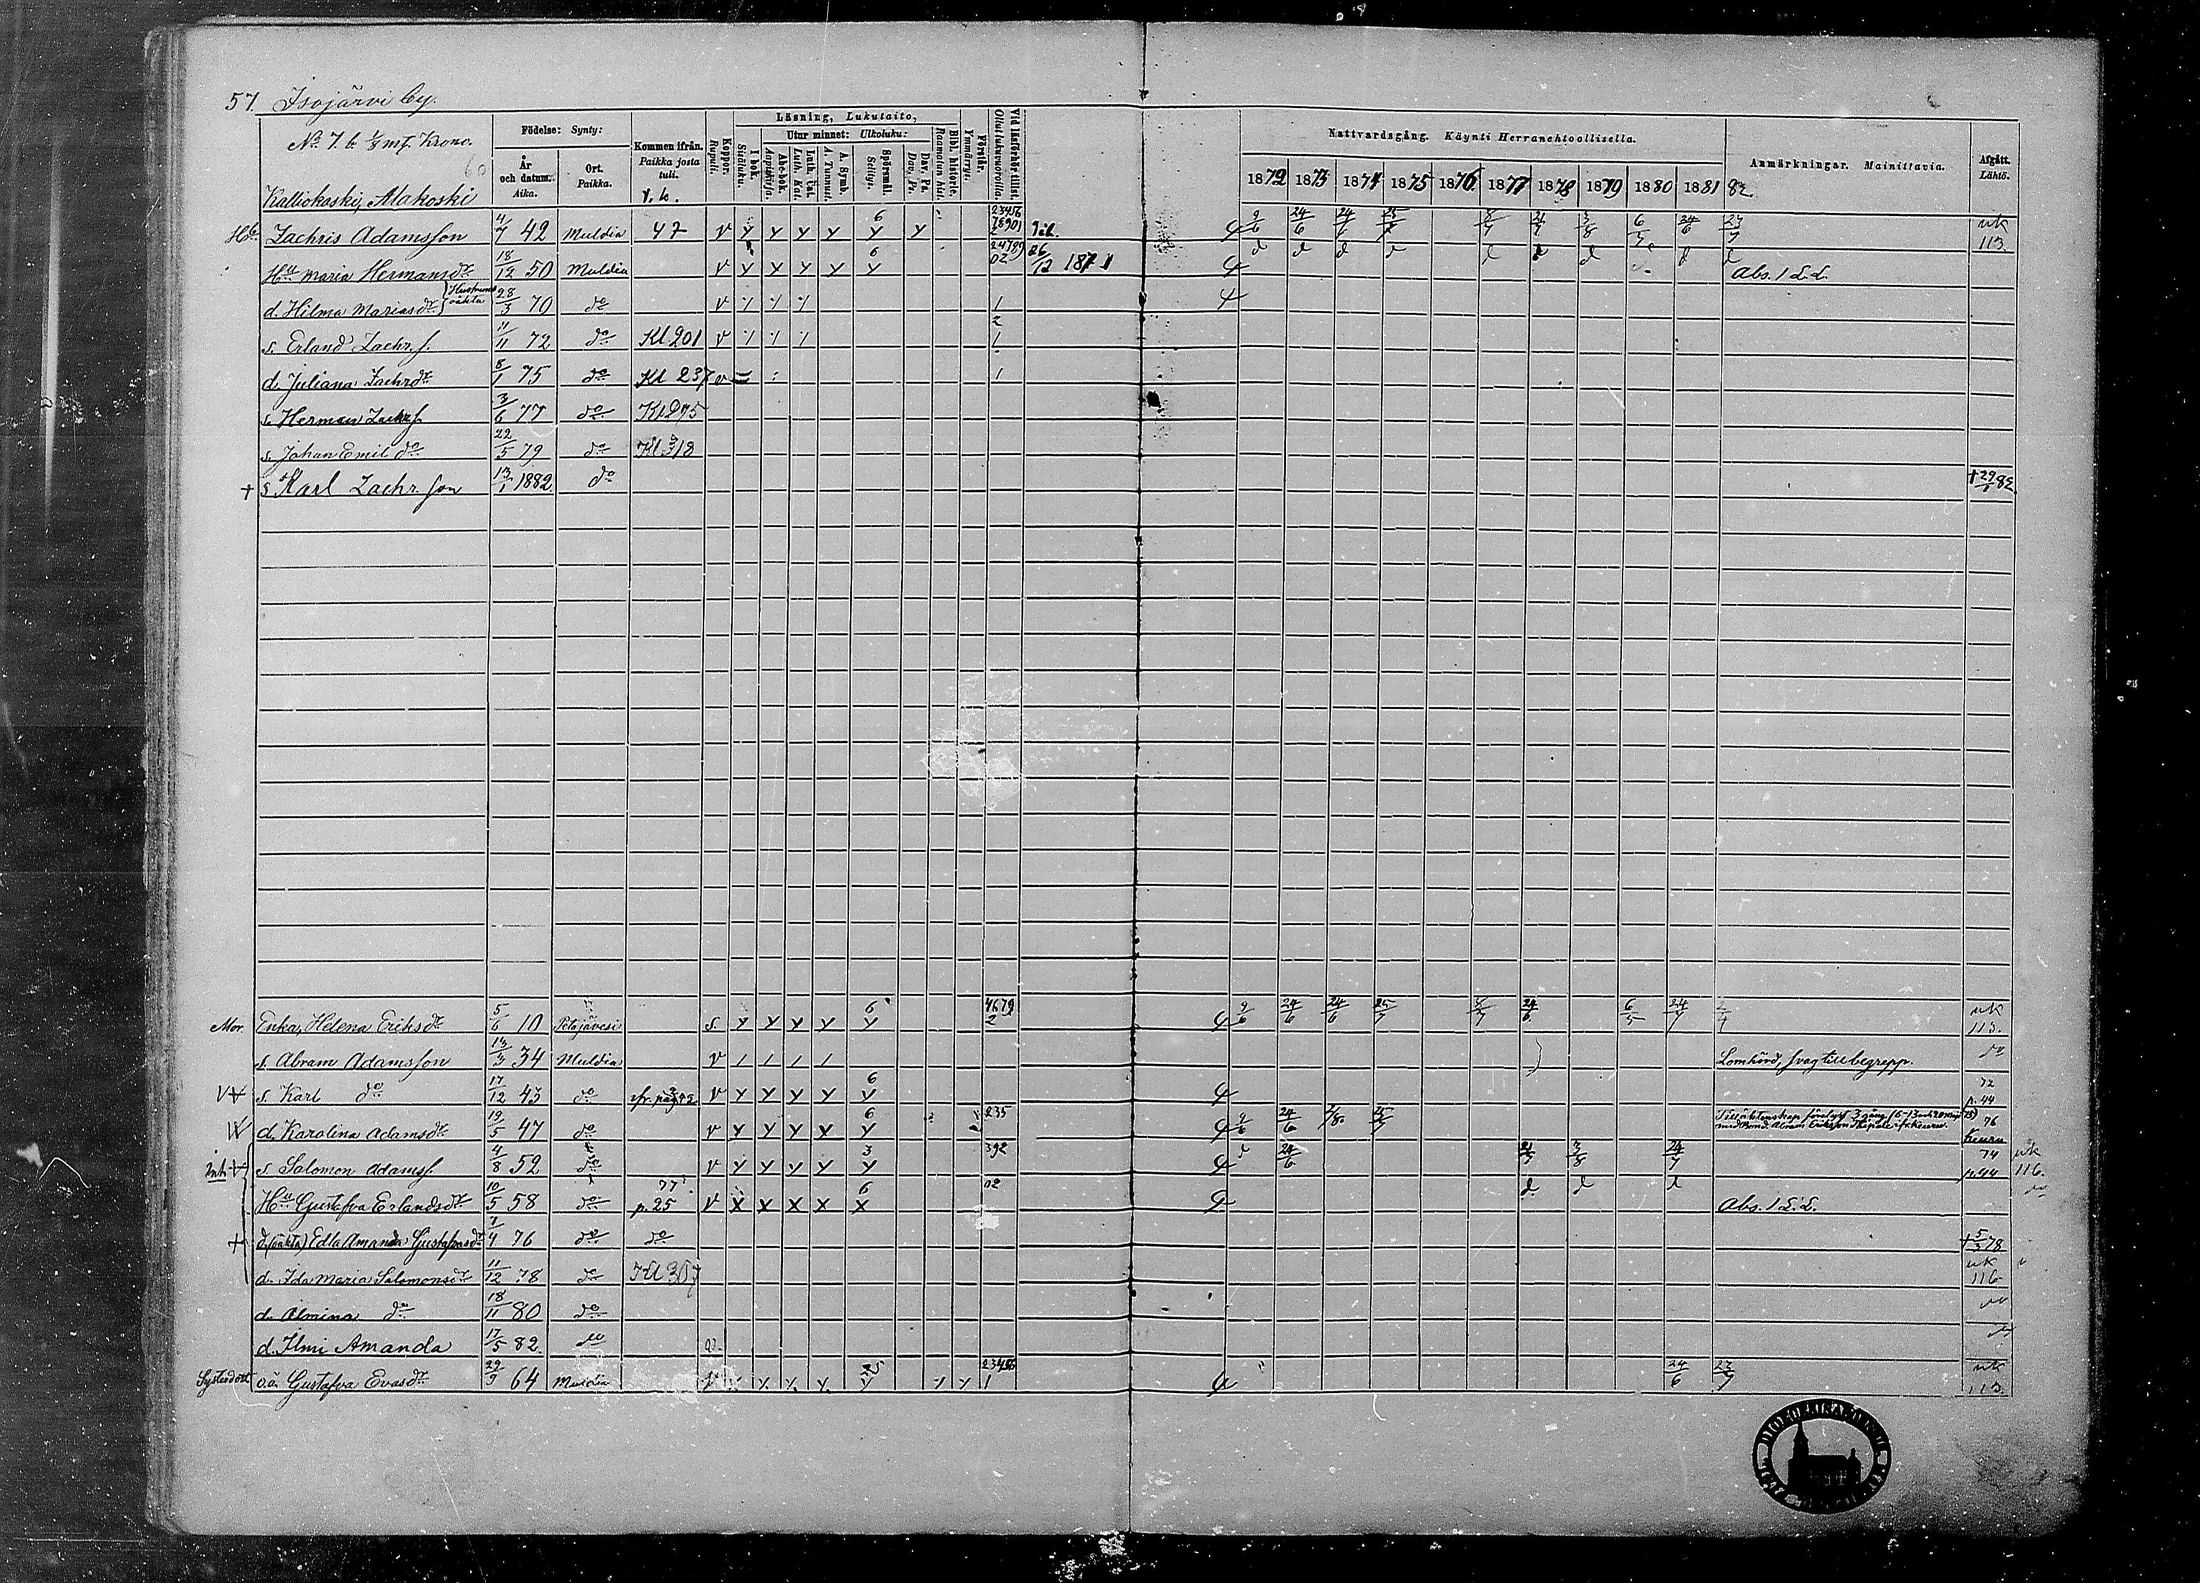 57. Isojärvi by.
No 7. b 1/8 mt. Krono.
60
Kalliokoski, Alakoski
Födelse: Synty:
År och datum. Aika.
Ort. Paikka.
Kommen ifrån. Paikka josta tuli.
v. k.
Koppor. Rupuli.
Läsning, Lukutaito,
I bok. Sisäluku.
Utur minnet: Ulkoluku:
Abc-bok. Aapiskirja.
Luth. Cat. Luth. Kat.
A. Symb. A. Tunnust.
Spörsmål. Selitys.
Dav. Ps. Dav. Ps.
Bibl. historie. Raamatun hist.
Förstår. Ymmärrys.
Vid läsförhör tillst. Ollut lukuvuoroilla.
Nattvardsgång. Käynti Herranehtoollisella.
1872 1873 1874 1875 1876 1877 1878 1879 1880 1881 82
Anmärkningar. Mainittavia.
Afgått. Lähtö.
Zachris Adamsson 4/7 42 Muldia 47 v y y y y 6 y y 23456 78901 Gift. 9/6 24/6 24/6 25/7 8/7 21/7 3/8 6/5 24/6 23/7 uk 113.
Hu Maria Hermansdr 18/12 50 Muldia v y y y y 6 y 24789 02 26/12 1871 d d d d d d d d d Abs. 1 L. L.
d. Hilma Mariasdr Hustruns oäkta 28/3 70 do v 1
s. Erland Zachr.s. 11/11 72 do Kl 201 v 2 1
d. Juliana Zachrdr 8/1 75 do Kl 237 v 1
s. Herman Zachr.s. 3/6 77 do Kl 275
s. Johan Emil do 22/5 79 do Kl 318
+ s Karl Zachr. son 13/1 1882. do + 29/1 82
Mor. Enka, Helena Eriksdr 5/6 10 Petäjävesi s. y y y y 6 y 4679 2 9/6 24/6 24/6 25/7 8/7 21/6 6/5 24/7 uk 113.
s. Abram Adamsson 13/3 34 Muldia v / / / / Lomhörd, svag till begrepp. do
s. Karl do 17/12 43 do v y y y y 6 y 72 p. 44
d. Karolina Adamsdr 19/5 47 do v y y y y 6 y 235 9/6 24/6 2/8 25/7 Till äktenskap förelyst 3 gång. 76 Keuru
s. Salomon Adamss. 4/8 52 do v y y y y 3 y 392 d 24/6 21/7 3/8 24/7 74 p. 44 uk 116.
Hu Gustafva Erlandsdr 10/5 58 do 77 p. 25 v x x x x 6 x 02 d d d Abs. 1 L. L. do
+ d. (oäkta) Edla Amanda Gustafvasdr 1/4 76 do do + 5/3 78
d. Ida Maria Salomonsdr 11/12 78 do Kl 307 uk 116.
d. Almina do 18/11 80 do do
d. Ilmi Amanda 17/5 82. do do
Systerdott o.ä. Gustafva Evasdr 29/9 64 Muldia v y y y 23456 1 24/6 23/7 uk 113.